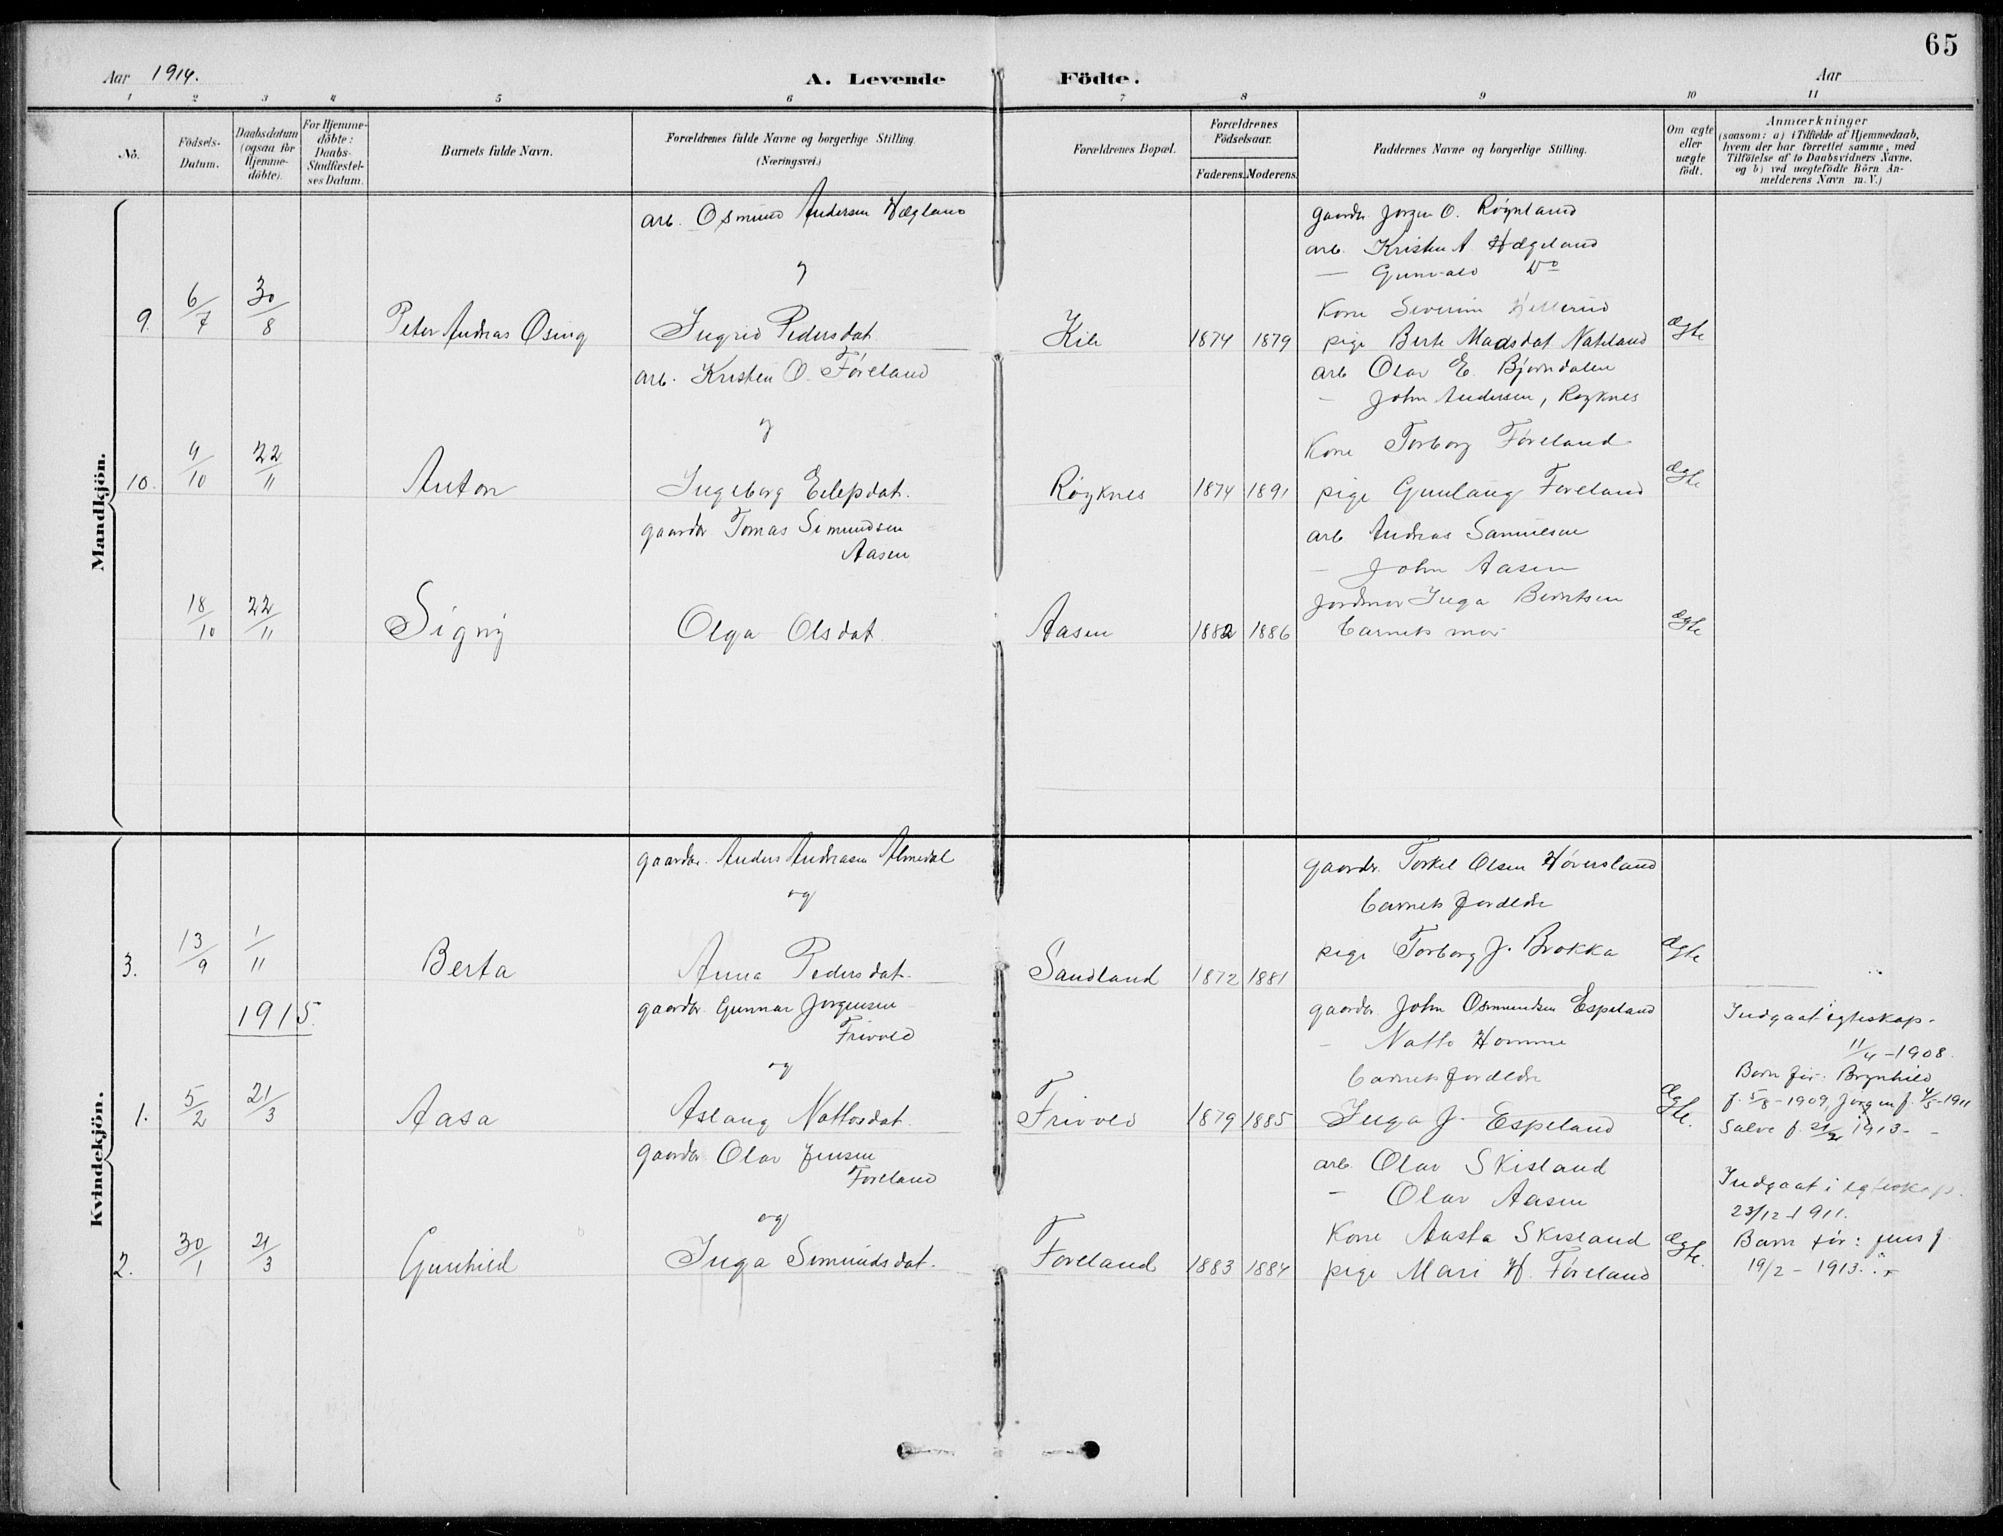 65
Aar 1914.
A. Levende Födte.
Aar
1 2 3 4 5 6 7 8 9 10 11
No.
Födsels-Datum.
Daabsdatum (ogsaa for Hjemme-döbte).
For Hjemme-döbte: Daabs-Stadfæstel-ses Datum.
Barnets fulde Navn.
Forældrenes fulde Navne og borgerlige Stilling. (Næringsvei.)
Forældrenes Bopæl.
Forældrenes Födselsaar.
Faderens. Moderens.
Faddernes Navne og borgerlige Stilling.
Om ægte eller uægte födt.
Anmærkninger
(saasom: a) i Tilfælde af Hjemmedaab, hvem der har forrettet samme, med Tilföielse af to Daabsvidners Navne, og b) ved uægtefödte Börn Anmelderens Navn m. V.)
Mandkjön.
9. 6/7 30/8 Peter Andreas Osing
arb. Osmund Andersen Hægland
og
Ingrid Pedersdat.
Kile 1874 1879
gaardbr. Jørgen O. Røynland
arb. Kristen A. Hægeland
— Gunvald Do
Kone Severine
pige Berte Madsdat Nateland
Ægte
10. 9/10 22/11 Anton
arb. Kristen O. Føreland
og
Ingeborg Eilefsdat.
Røyknes 1874 1891
arb Olav E. Bjørndalen
- John Andersen, Røyknes
Kone Torborg Føreland
pige Gunlaug Føreland
Ægte
18/10 22/11 Signy
gaardbr Tomas Simundsen
Aasen
Olga Olsdat.
Aasen 1882 1886
arb Andreas Samuelsen
- John Aasen
Jordmor Inga Berntsen
barnets mor
Ægte
Kvindekjön.
3. 13/9 1/11 Berta
gaardbr. Anders Andreasen Almedal
og
Anna Pedersdat.
Sandland 1872 1881
gaardbr. Torkel Olsen Høversland
barnets foreldre
pige Torborg J. Brokka
Ægte
1915.
1. 5/2 21/3 Aasa
gaardbr. Gunnar Jørgensen
Frivold
og
Aslaug Nattosdat.
Frivold 1879 1885
gaardbr. John Osmundsen Espeland
- Natto Homme
barnets foreldre
Inga J. Espeland
Ægte.
Indgaat i egteskap.
11/4 - 1908.
Barn før: Brynhild
f. 5/8 - 1909, Jørgen f. 4/5 - 1911
Salve f. 21/2 1913 -
2. 30/1 21/3 Gunhild
gaardbr. Olav Jensen
Føreland
og
Inga Simundsdat.
Føreland 1883 1884
arb. Olav Skisland
- Olav Aasen
Kone Aasta Skisland
pige Mari H. Føreland
Ægte.
Indgaat i egteskap
23/12 1911.
Barn før: Jens f.
19/2 - 1913.